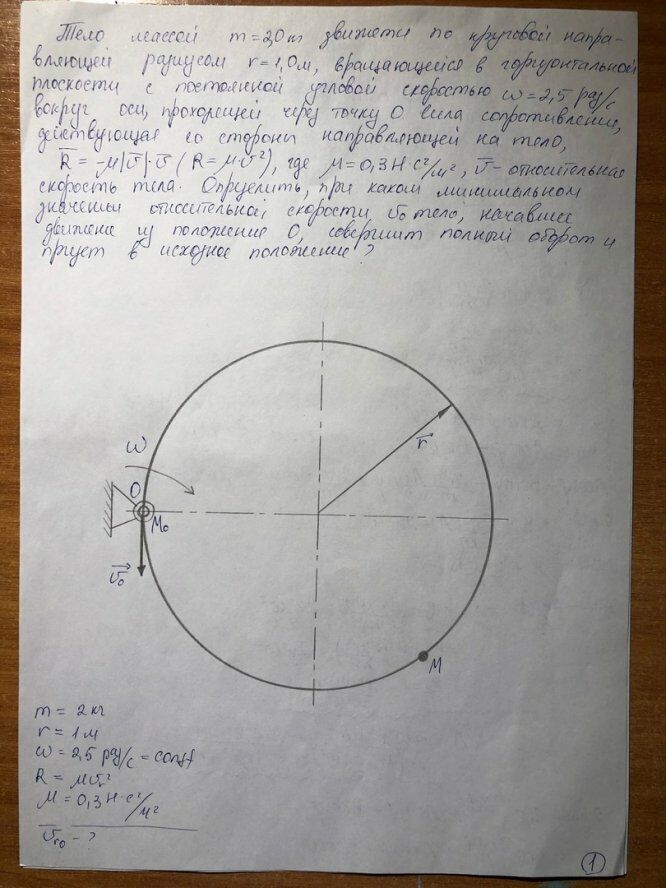 Тело массой m = 2,0 кг движется по круговой направ-
вляющей радиусом r = 1,0 м, вращающейся в горизонтальной
плоскости с постоянной угловой скоростью ω = 2,5 рад/с
вокруг оси, проходящей через точку O. Сила сопротивления,
действующая со стороны направляющей на тело,
R̄ = μ|v̄|·v̄ (R = μ·v²), где μ = 0,3 Н·с²/м², v̄ - относительная
скорость тела. Определить, при каком минимальном
значении относительной скорости v₀ тело, начавшее
движение из положения O, совершит полный оборот и
придет в исходное положение?
ω
r̄
O
M₀
v̄₀
M
m = 2 кг
r = 1 м
ω = 2,5 рад/с = const
R = μv²
μ = 0,3 Н·с²/м²
v̄r₀ - ?
1